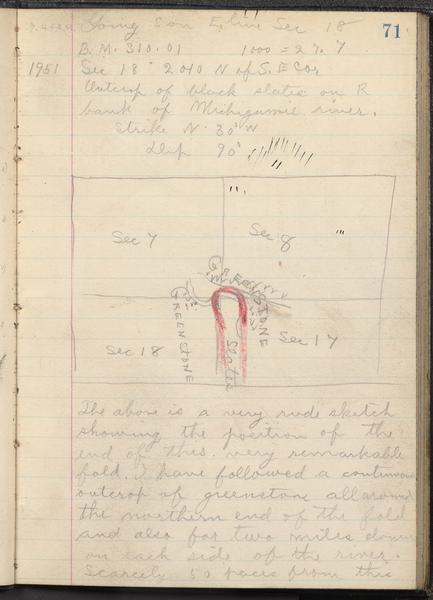 71
Going S on E line Sec 18
B.M. 310.01 1000 = 2% Y
1951 Sec 18 2010 N of S.E Cor
Outcrop of black slates on R
bank of Michigamie river.
Strike N 30° W
dip 90°
Sec 7
Sec 8
GREENSTONE
GREENSTONE
Sec 18
Slates
Sec 17
The above is a very rude sketch
showing the position of the
end of this very remarkable
fold. I have followed a continuous
outcrop of greenstone all around
the northern end of the fold
and also for two miles down
on each side of the river.
Scarcely 50 paces from this